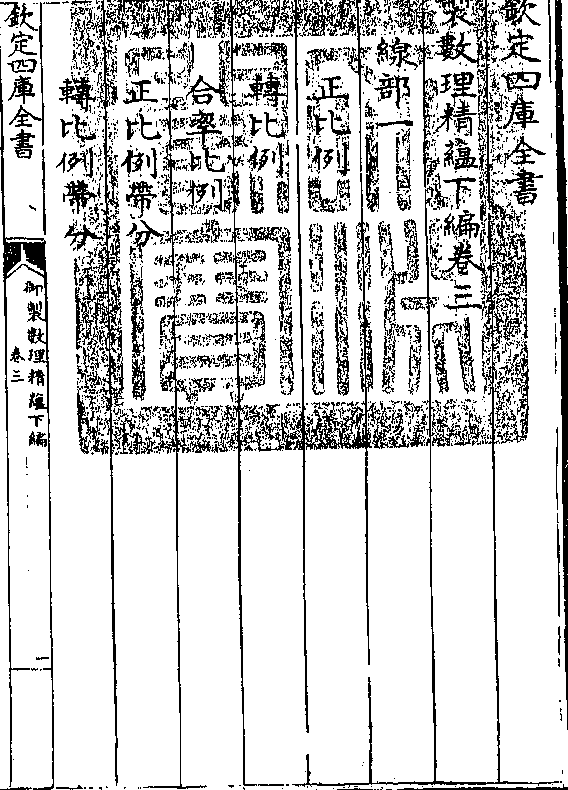 欽定四庫全書
製數理精蘊下編卷三
線部一
正比例
轉比例
合率比例
正比例帶分
轉比例帶分
欽定四庫全書
御製數理精蘊下編
卷三
一